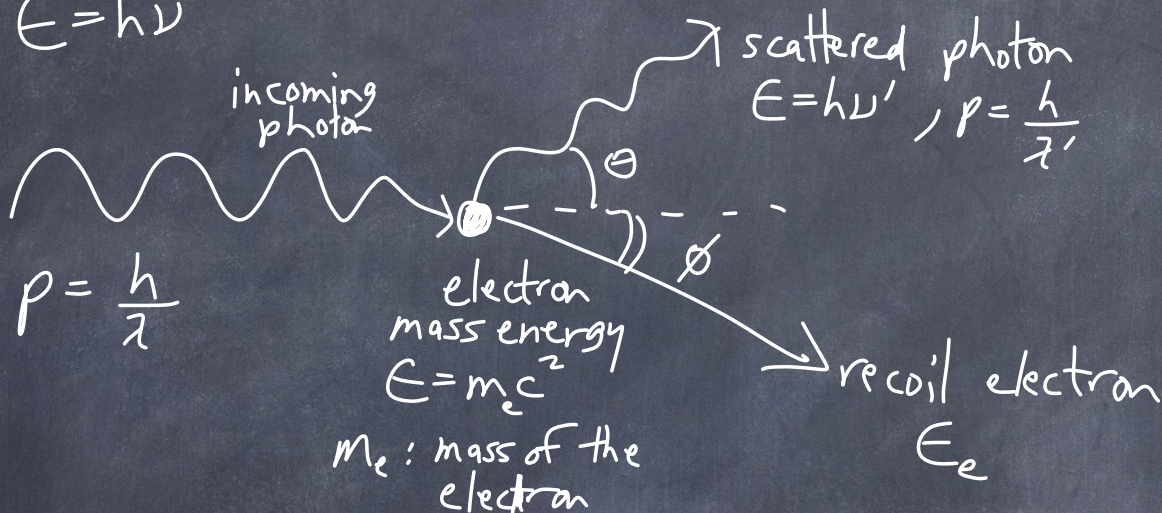 E = hν
incoming
photon
p = h/λ
scattered photon
E = hν' , p = h/λ'
θ
ø
electron
mass energy
E = mₑc²
mₑ : mass of the
electron
recoil electron
Eₑ